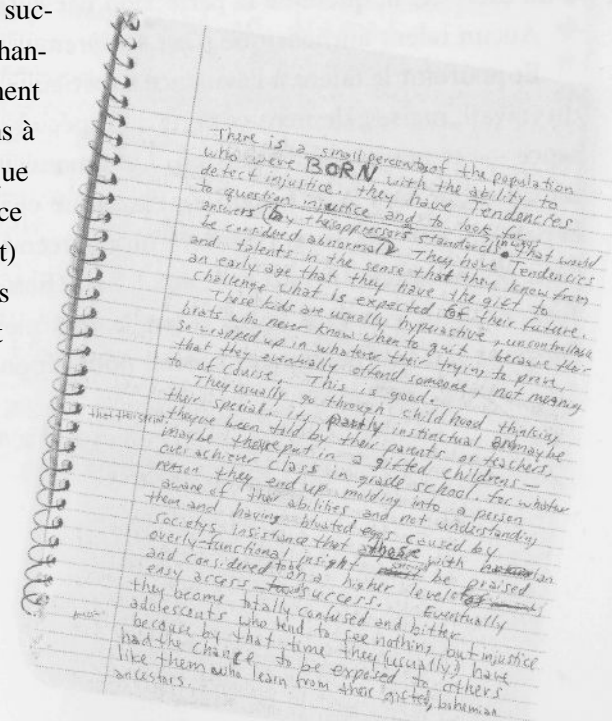 suc-
han-
ment
ns à
que
ce
t)
s
t
There is a small percent of the population
who were BORN with the ability to
detect injustice. they have Tendencies
to question injustice and to look for
answers (by the oppressors standards) in ways that would
be considered abnormal. They have Tendencies
and talents in the sense that they know from
an early age that they have the gift to
challenge what is expected of their future.
These kids are usually hyperactive, uncontrollable
brats who never know when to quit because their
so wrapped up in whatever their trying to prove,
that they eventually offend someone, not meaning
to of course. This is good.
They usually go through childhood thinking
that their special
their special. its partly instinctual maybe
theyve been told by their parents or teachers,
maybe theyre put in a gifted childrens -
over achiever class in grade school. for whatever
reason they end up molding into a person
aware of their abilities and not understanding
them and having bloated egos caused by
societys insistance that those with
overly-functional insight be praised
and considered to be on a higher level
easy access success. Eventually
they become totally confused and bitter
adolescents who tend to see nothing but injustice
because by that time they (usually) have
had the chance to be exposed to others
like them who learn from their gifted, bohemian
ancestors.